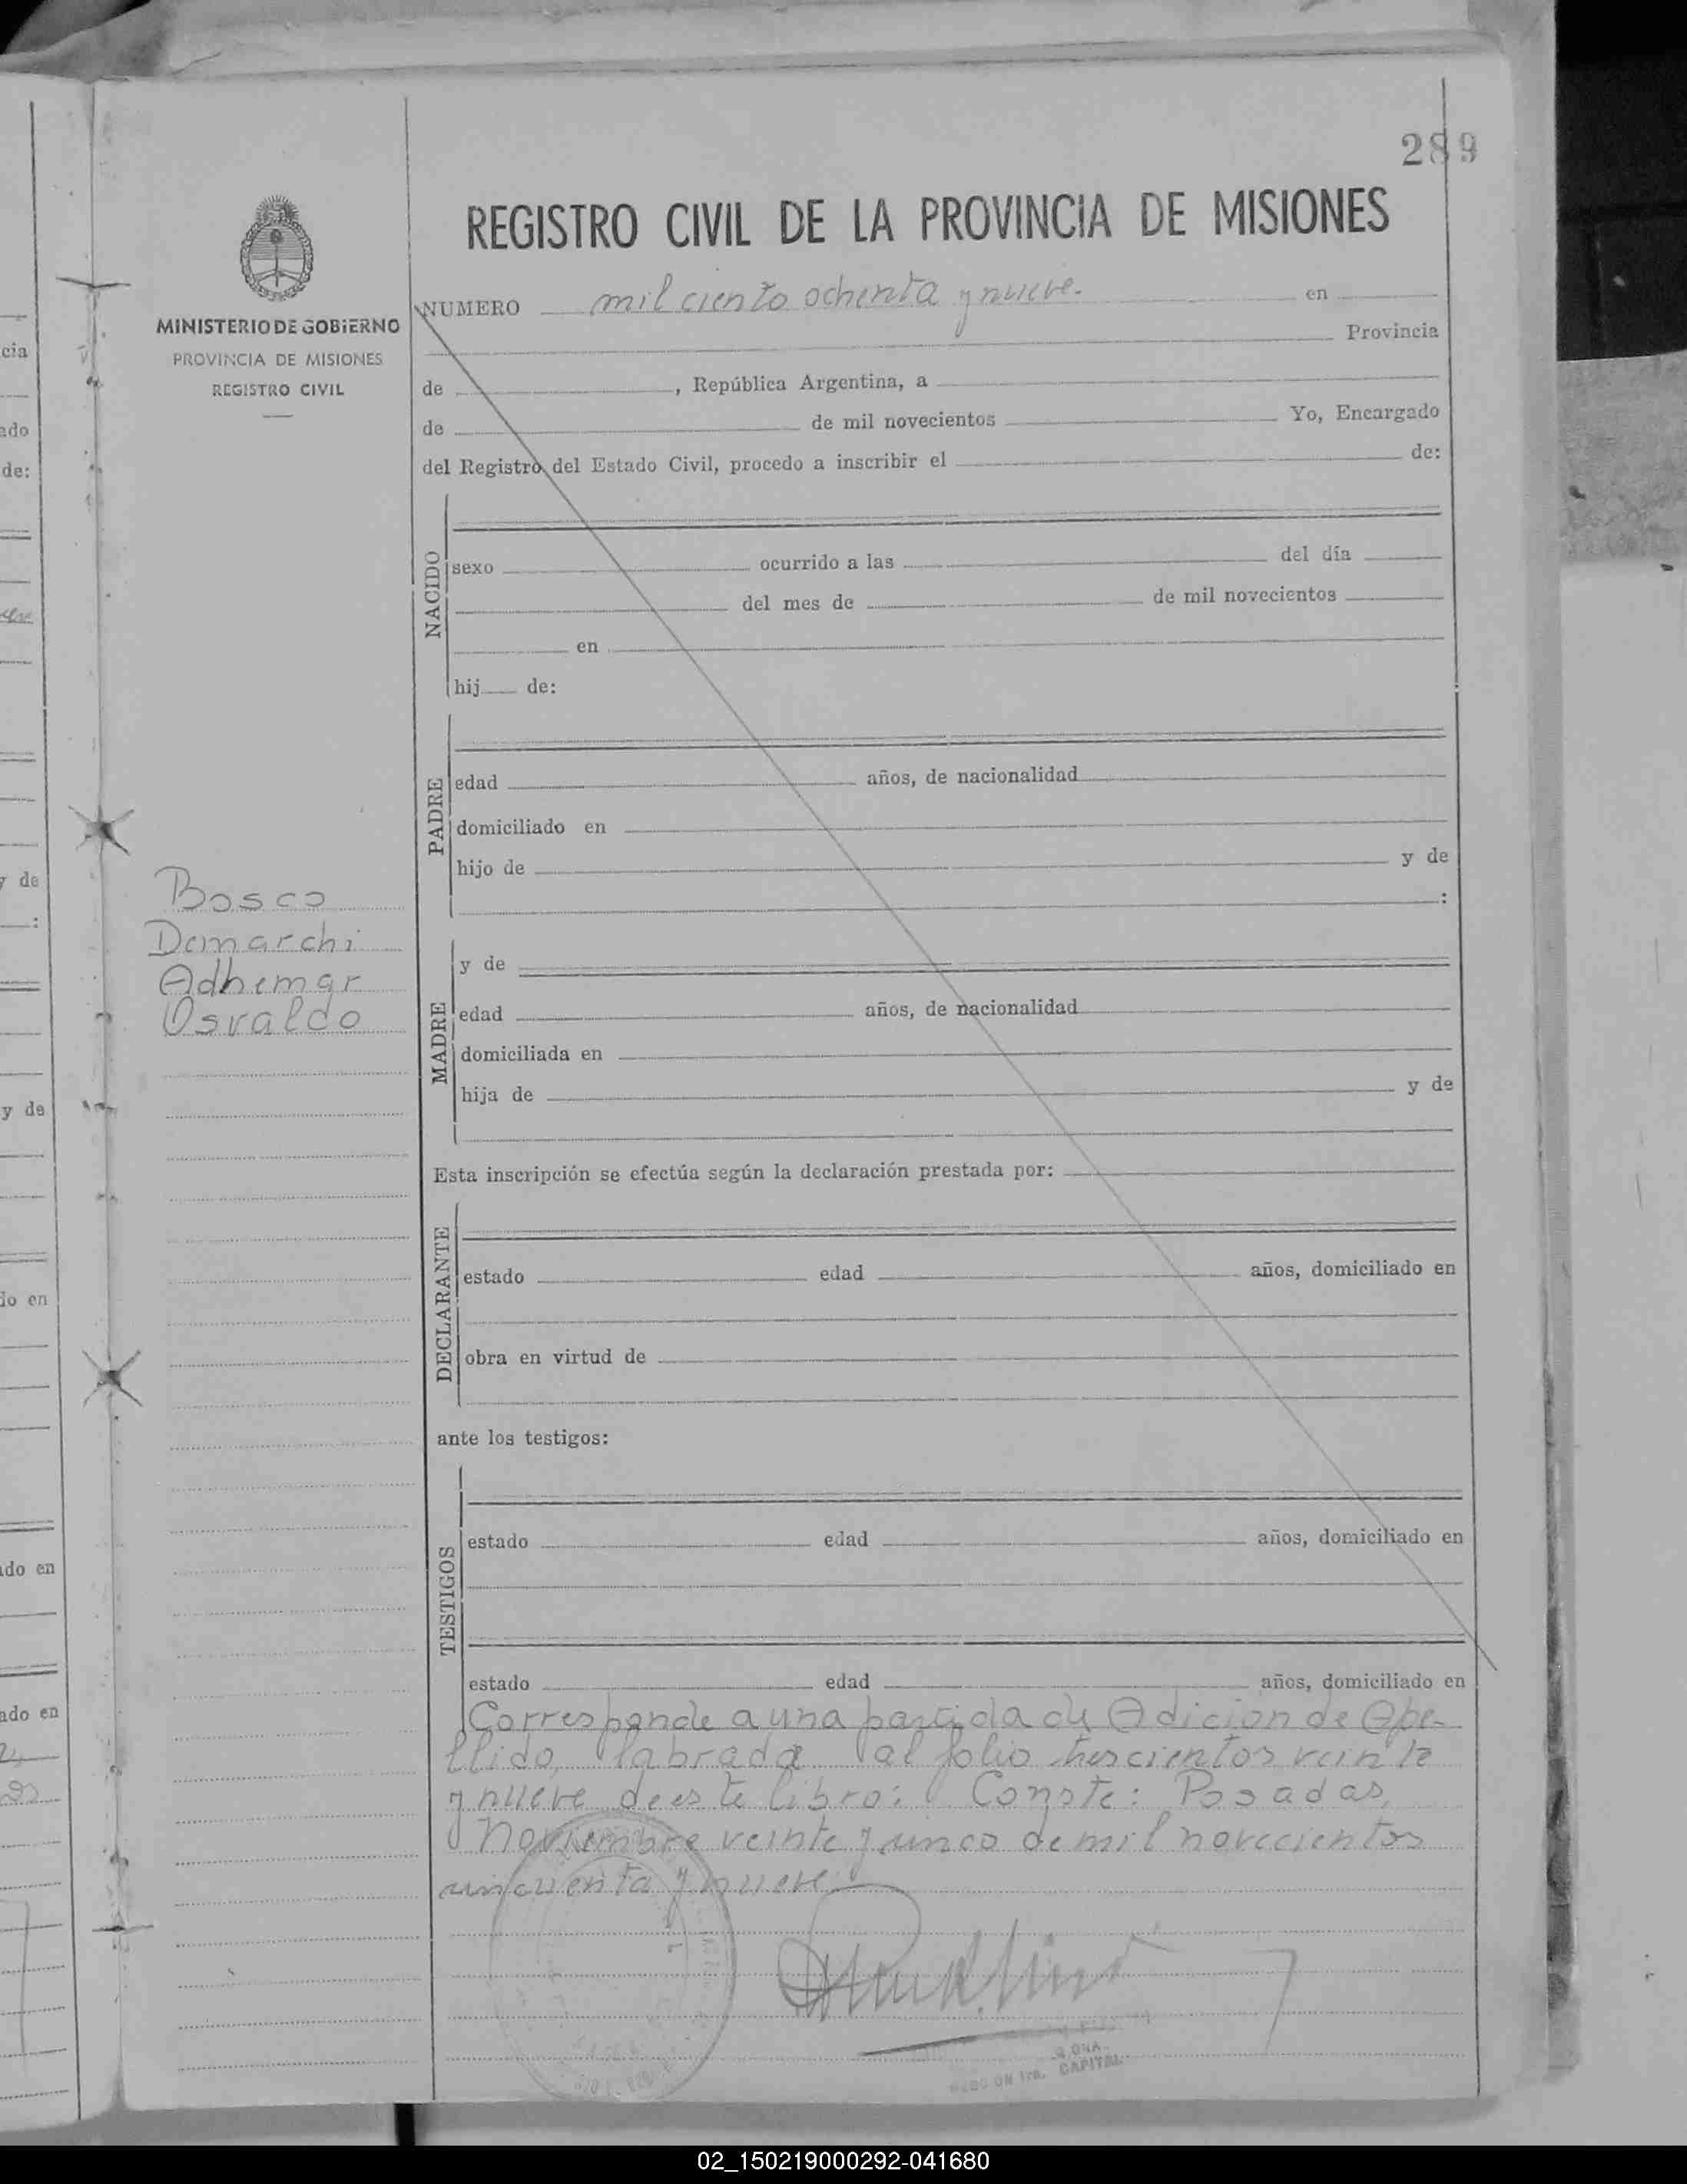 289
REGISTRO CIVIL DE LA PROVINCIA DE MISIONES
MINISTERIO DE GOBIERNO
PROVINCIA DE MISIONES
REGISTRO CIVIL
NUMERO mil ciento ochenta y nueve. en
Provincia
de , República Argentina, a
de de mil novecientos Yo, Encargado
del Registro del Estado Civil, procedo a inscribir el de:
NACIDO
sexo ocurrido a las del día
del mes de de mil novecientos
en
hij de:
PADRE
edad años, de nacionalidad
domiciliado en
hijo de y de
:
Bosco
Demarchi
Adhemar
Osvaldo
MADRE
y de
edad años, de nacionalidad
domiciliada en
hija de y de
Esta inscripción se efectúa según la declaración prestada por:
DECLARANTE
estado edad años, domiciliado en
obra en virtud de
ante los testigos:
TESTIGOS
estado edad años, domiciliado en
estado edad años, domiciliado en
Corresponde a una partida de Adicion de Ape-
llido, labrada al folio trescientos veinte
y nueve de este libro: Conste: Posadas,
Noviembre veinte y cinco de mil novecientos
cincuenta y nueve.
CAPITAL
cia
ado
de:
y de
:
y de
do en
ado en
ado en
02_150219000292-041680